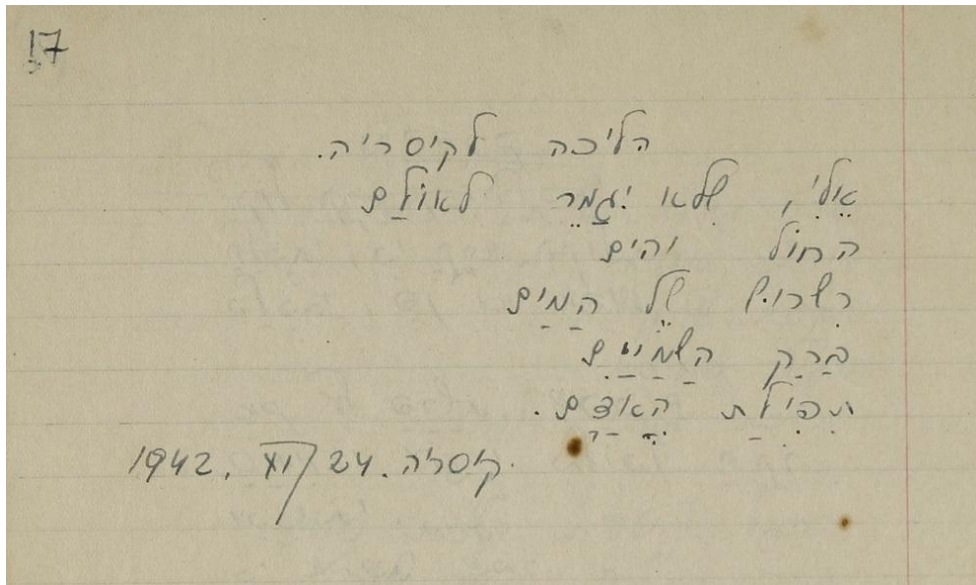 17
הליכה לקיסריה.
אלי, שלא יגמר לאולם
החול והים
רשרוש של המים
ברק השמים
תפילת האדם.
קיסריה. 24/XI. 1942